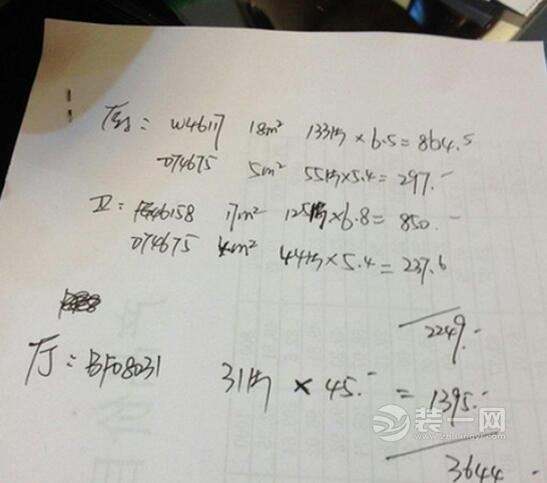 W4617 18m² 133块×6.5=864.5
074675 5m² 55块×5.4=297.-
卫: 46158 17m² 125块×6.8=850.-
074675 4m² 44块×5.4=237.6
2249.-
厅: BF08031 31块 × 45.- = 1395.-
3644.-
装一网
www.zhuangyi.com